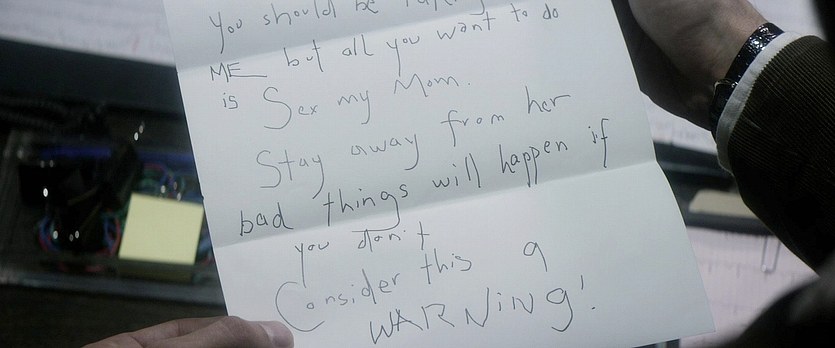 You should be
ME but all you want to do
is Sex my Mom.
Stay away from her
bad things will happen if
you don't
Consider this a
WARNiNg!